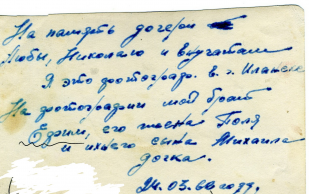 На память дочери
Любы, Николаю и внучатам
Я это фотограф. в г. Иланске
На фотографии мой брат
Ефим, его жена Поля
и ихнего сына Михаила
дочка.
24.03.60 году.